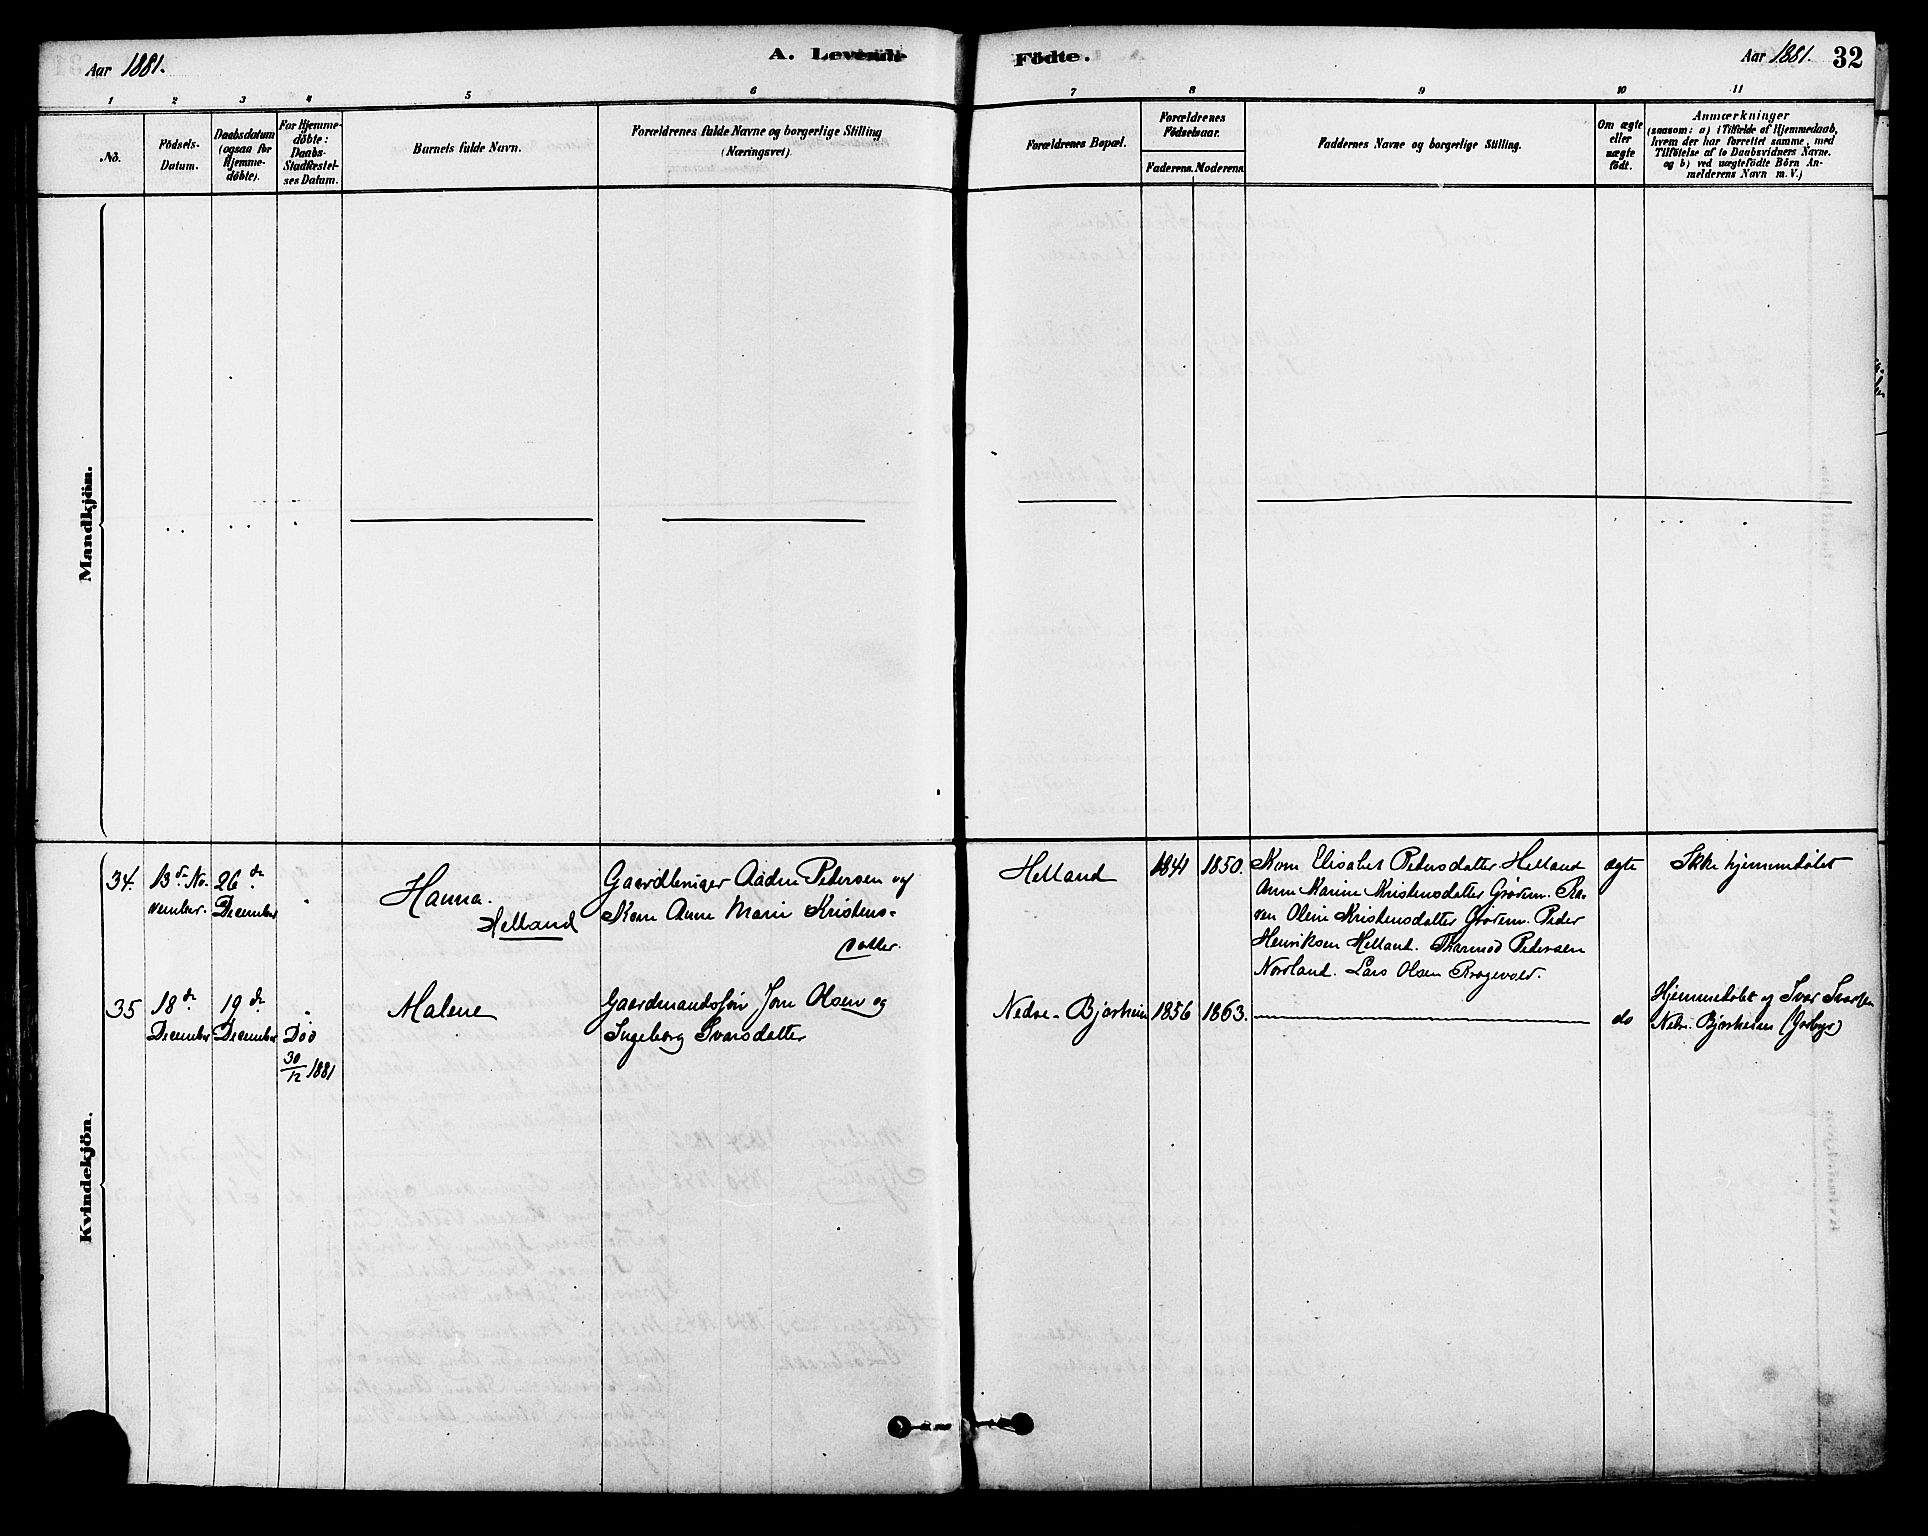 Aar 1881.
A. Levende
Födte.
Aar 1881.
32
1
2
3
4
5
6
7
8
9
10
11
No.
Födsels-
Datum.
Daabsdatum
(ogsaa for
Hjemme-
döbte).
For Hjemme-
döbte:
Daabs-
Stadfæstel-
ses Datum.
Barnets fulde Navn.
Forældrenes fulde Navne og borgerlige Stilling
(Næringsvei).
Forældrenes Bopæl.
Forældrenes
Födselsaar.
Faderens.
Moderens.
Faddernes Navne og borgerlige Stilling.
Om ægte
eller
uægte
födt.
Anmærkninger
(saasom: a) i Tilfælde af Hjemmedaab,
hvem der har forrettet samme, med
Tilföielse af to Daabsvidners Navne,
og b) ved uægtefödte Börn An-
melderens Navn m. V.)
Mandkjön.
Kvindekjön.
34.
13de No-
vember.
26de
December
Hanna.
Helland
Gaardbruger Aadne Pedersen og
Kone Anne Marie Kristens-
datter.
Helland
1841
1850.
Kone Elisabet Pedersdatter Helland
Anne Karine Kristensdatter Grødem.
Oline Kristensdatter Grødem. Peder
Henriksen Helland. Thormod Pedersen
Nordland. Lars Olsen
ægte
Ikke hjemmedøbt
35
18de
December
19de
December
Død
30/12 1881
Malene
Gaardmandssøn Jone Olsen og
Ingeborg Svarsdatter
Nedre-Bjørheim
1856
1863.
do
Hjemmedøbt af Svar
Nedr. Bjørheim